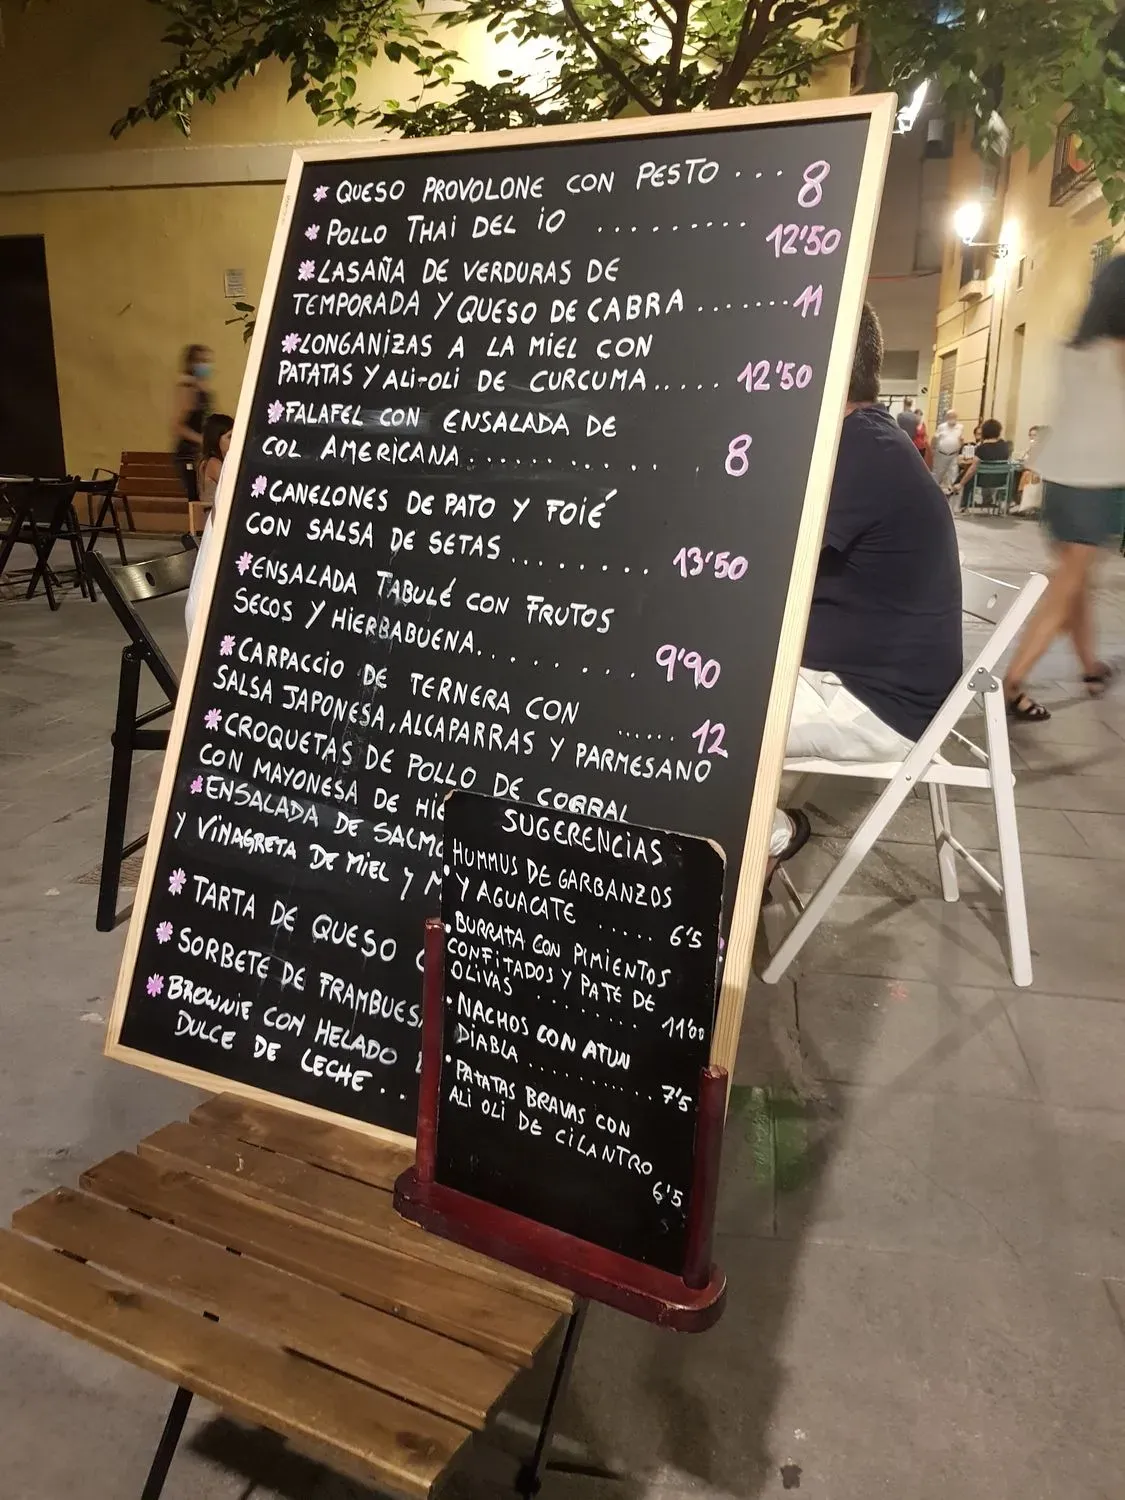 * QUESO PROVOLONE CON PESTO ... 8
* POLLO THAI DEL iO ......... 12'50
* LASAÑA DE VERDURAS DE
TEMPORADA Y QUESO DE CABRA ....... 11
* LONGANIZAS A LA MIEL CON
PATATAS Y ALI-OLI DE CURCUMA ..... 12'50
* FALAFEL CON ENSALADA DE
COL AMERICANA .......... 8
* CANELONES DE PATO Y FOIÉ
CON SALSA DE SETAS ........ 13'50
* ENSALADA TABULÉ CON FRUTOS
SECOS Y HIERBABUENA ........ 9'90
* CARPACCIO DE TERNERA CON
SALSA JAPONESA, ALCAPARRAS Y PARMESANO ...... 12
* CROQUETAS DE POLLO DE CORRAL
CON MAYONESA DE
* ENSALADA DE
Y VINAGRETA DE MIEL Y
* TARTA DE QUESO
* SORBETE DE
* BROWNIE CON HELADO
DULCE DE LECHE ..
SUGERENCIAS
HUMMUS DE GARBANZOS
Y AGUACATE ..... 6'5
• BURRATA CON PIMIENTOS
CONFITADOS Y PATE DE
OLIVAS ......... 11'00
• NACHOS CON ATUN
DIABLA ............ 7'5
• PATATAS BRAVAS CON
ALI OLI DE CILANTRO
6'5